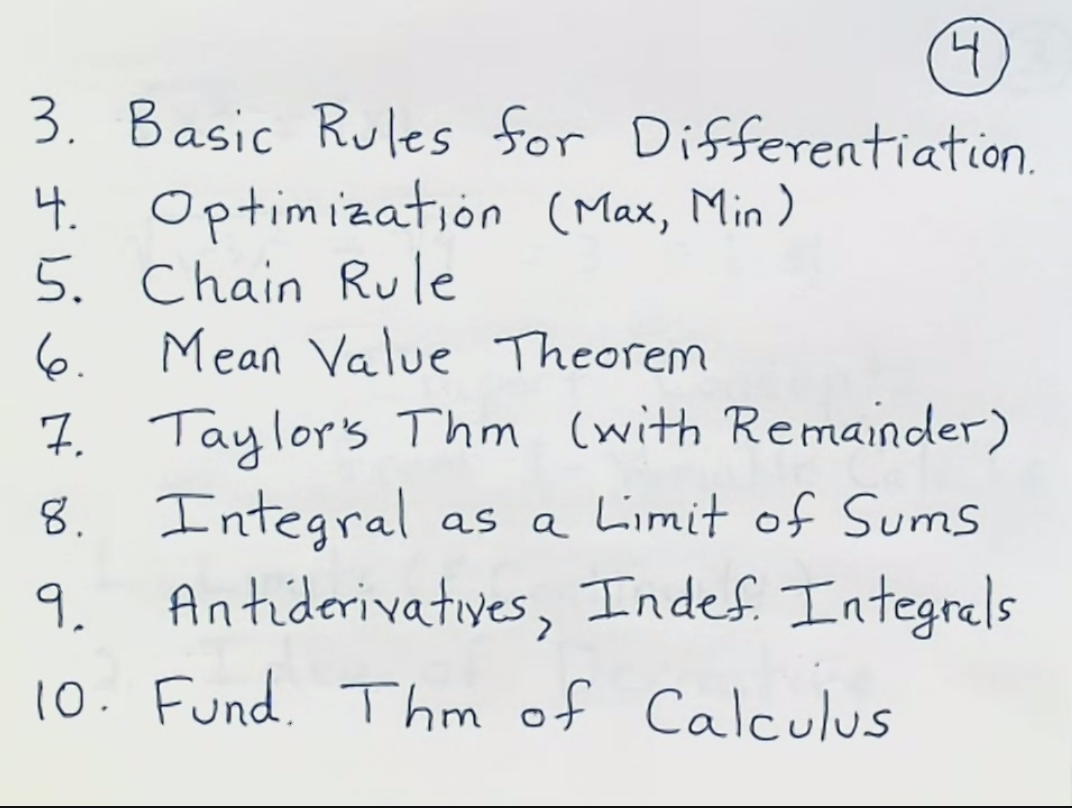 4
3. Basic Rules for Differentiation.
4. Optimization (Max, Min)
5. Chain Rule
6. Mean Value Theorem
7. Taylor's Thm (with Remainder)
8. Integral as a Limit of Sums
9. Antiderivatives, Indef. Integrals
10. Fund. Thm of Calculus